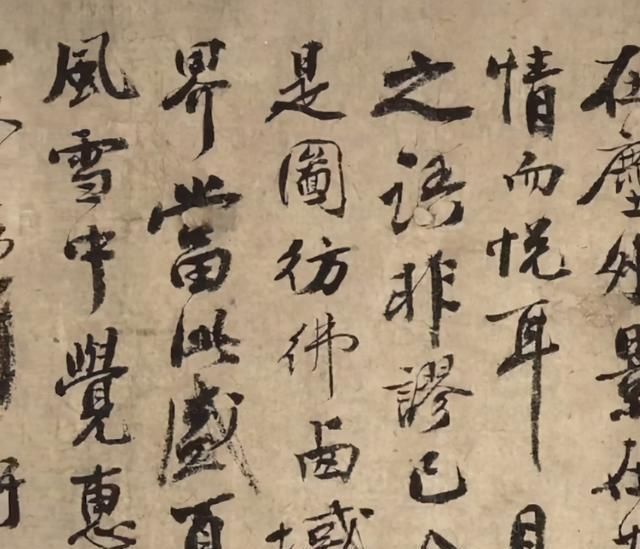 在塵外景在
情而悅耳
之語非謬已
是圖彷彿卥域
界當此盛夏
風雪中覺惠